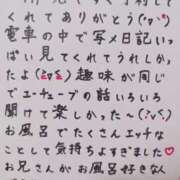 くれてありがとう(´▽`)
電車の中で写メ日記い
っぱい見てくれてうれしかっ
たよ(≧▽≦)趣味が同じ
でユーチューブの話いろいろ
聞けて楽しかった〜(^▽^)
お風呂でたくさんエッチな
ことして気持ちよすぎました♥
お兄さんがお風呂好きなん